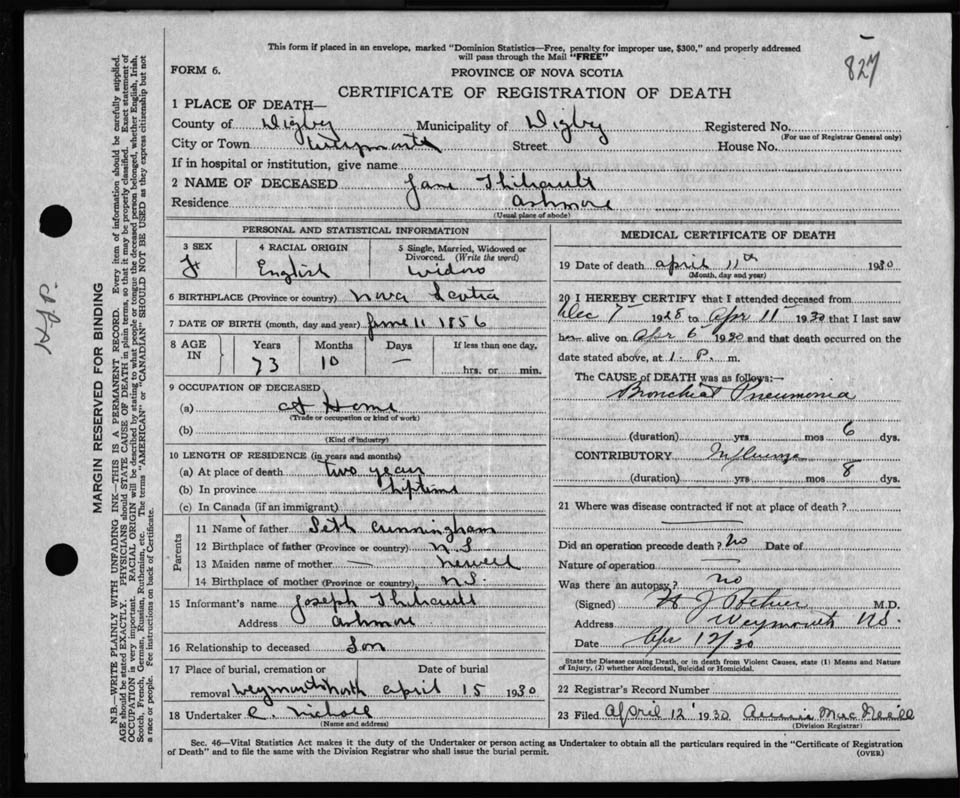 This form if placed in an envelope, marked "Dominion Statistics—Free, penalty for improper use, $300," and properly addressed
will pass through the Mail "FREE"
827
FORM 6.
PROVINCE OF NOVA SCOTIA
CERTIFICATE OF REGISTRATION OF DEATH
1 PLACE OF DEATH—
County of Digby Municipality of Digby Registered No.
(For use of Registrar General only)
City or Town Street House No.
If in hospital or institution, give name
2 NAME OF DECEASED Jane Thibault
Residence Ashmore
(Usual place of abode)
PERSONAL AND STATISTICAL INFORMATION
3 SEX 4 RACIAL ORIGIN 5 Single, Married, Widowed or
Divorced. (Write the word)
F English widow
6 BIRTHPLACE (Province or country) Nova Scotia
7 DATE OF BIRTH (month, day and year) June 11 1856
8 AGE IN Years Months Days If less than one day,
73 10 — hrs. or min.
9 OCCUPATION OF DECEASED
(a) at Home
(Trade or occupation or kind of work)
(b)
(Kind of industry)
10 LENGTH OF RESIDENCE (in years and months)
(a) At place of death two years
(b) In province lifetime
(c) In Canada (if an immigrant)
Parents
11 Name of father Seth Cunningham
12 Birthplace of father (Province or country) N.S
13 Maiden name of mother — Newell
14 Birthplace of mother (Province or country) N.S.
15 Informant's name Joseph Thibault
Address Ashmore
16 Relationship to deceased Son
17 Place of burial, cremation or Date of burial
removal Weymouth North April 15 1930
18 Undertaker C. Nichols
(Name and address)
MEDICAL CERTIFICATE OF DEATH
19 Date of death April 11th 1930
(Month, day and year)
20 I HEREBY CERTIFY that I attended deceased from
Dec 7 1928 to Apr 11 1930 that I last saw
her alive on Apr 6 1930 and that death occurred on the
date stated above, at 1. P. m.
The CAUSE of DEATH was as follows:—
Bronchial Pneumonia
(duration) yrs mos 6 dys.
CONTRIBUTORY Influenza
(duration) yrs mos 8 dys.
21 Where was disease contracted if not at place of death?
Did an operation precede death? No Date of
Nature of operation
Was there an autopsy? no
(Signed) M.D.
Address Weymouth N.S.
Date Apr 12/30
State the Disease causing Death, or in death from Violent Causes, state (1) Means and Nature
of Injury, (2) whether Accidental, Suicidal or Homicidal.
22 Registrar's Record Number
23 Filed April 12 1930 Annie MacNeill
(Division Registrar)
Sec. 46—Vital Statistics Act makes it the duty of the Undertaker or person acting as Undertaker to obtain all the particulars required in the "Certificate of Registration
of Death" and to file the same with the Division Registrar who shall issue the burial permit.
(OVER)
MARGIN RESERVED FOR BINDING
N.B.—WRITE PLAINLY WITH UNFADING INK—THIS IS A PERMANENT RECORD. Every item of information should be carefully supplied.
AGE should be stated EXACTLY. PHYSICIANS should STATE CAUSE OF DEATH in plain terms, so that it may be properly classified. Exact statement of
OCCUPATION is very important. RACIAL ORIGIN will be described by stating to what people or tongue the deceased person belonged, whether English, Irish,
Scotch, French, German, Russian, Ruthenian, etc. The terms "AMERICAN" or "CANADIAN" SHOULD NOT BE USED as they express citizenship but not
a race or people. Fee instructions on back of Certificate.